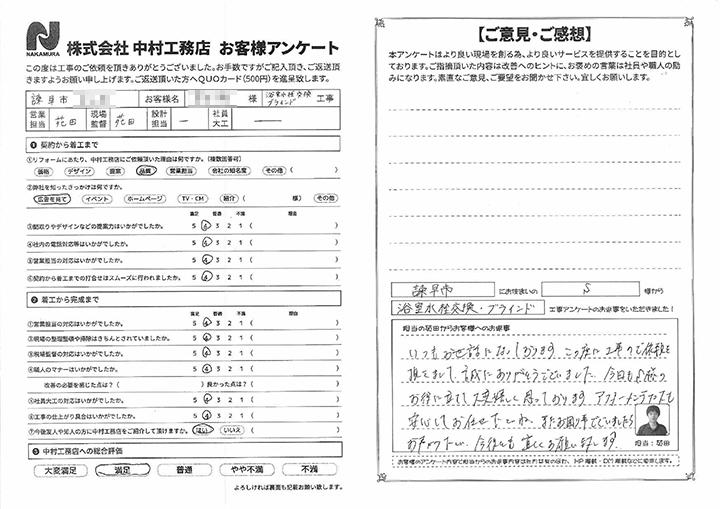 NAKAMURA
株式会社 中村工務店 お客様アンケート
この度は工事のご依頼を頂きありがとうございました。お手数ですがご記入頂き、ご返送頂
きますようお願い申し上げます。ご返送頂いた方へQUOカード(500円)を進呈致します。
諫早市 お客様名 様 浴室水栓交換 ブラインド 工事
営業担当 苑田 現場監督 苑田 設計担当 ー 社員大工 ー
❶ 契約から着工まで
①リフォームにあたり、中村工務店にご依頼頂いた理由は何ですか。(複数回答可)
価格 デザイン 提案 品質 営業担当 会社の知名度 その他( )
②弊社を知ったきっかけは何ですか。
広告を見て イベント ホームページ TV・CM 紹介( 様) その他
満足 普通 不満 理由
③間取りやデザインなどの提案力はいかがでしたか。 5 4 3 2 1 ( )
④社内の電話対応等はいかがでしたか。 5 4 3 2 1 ( )
⑤営業担当の対応はいかがでしたか。 5 4 3 2 1 ( )
⑥契約から着工までの打合せはスムーズに行われましたか。 5 4 3 2 1 ( )
❷ 着工から完成まで
満足 普通 不満 理由
①営業担当の対応はいかがでしたか。 5 4 3 2 1 ( )
②現場の整理整頓や掃除はきちんとされていましたか。 5 4 3 2 1 ( )
③現場監督の対応はいかがでしたか。 5 4 3 2 1 ( )
④職人のマナーはいかがでしたか。 5 4 3 2 1 ( )
改善の必要を感じた点は?( )良かった点は?( )
⑤社員大工の対応はいかがでしたか。 5 4 3 2 1 ( )
⑥工事の仕上がり具合はいかがでしたか。 5 4 3 2 1 ( )
⑦今後友人や知人の方に中村工務店をご紹介して頂けますか。 はい いいえ ( )
❸ 中村工務店への総合評価
大変満足 満足 普通 やや不満 不満
よろしければ裏面も記載お願い致します。
【ご意見・ご感想】
本アンケートはより良い現場を創る為、より良いサービスを提供することを目的とし
ております。ご指摘頂いた内容は改善へのヒントに、お褒めの言葉は社員や職人の励
みになります。素直なご意見、ご要望をお聞かせ下さい。宜しくお願いします。
諫早市 にお住まいの S 様から
浴室水栓交換・ブラインド 工事アンケートのお返事をいただきました!
担当の苑田からお客様へのお返事
いつもお世話になっております。この度は工事のご依頼を
頂きまして、誠にありがとうございました。今回もS様の
お役に立てて大変嬉しく思っております。アフターメンテナンスも
安心してお任せ下さいね。またお困り事でございましたら
今後とも宜しくお願い致します。
担当:苑田
お客様のアンケート内容と担当からのお返事内容は社内掲載のほか、HP掲載・DM掲載などに使用します。